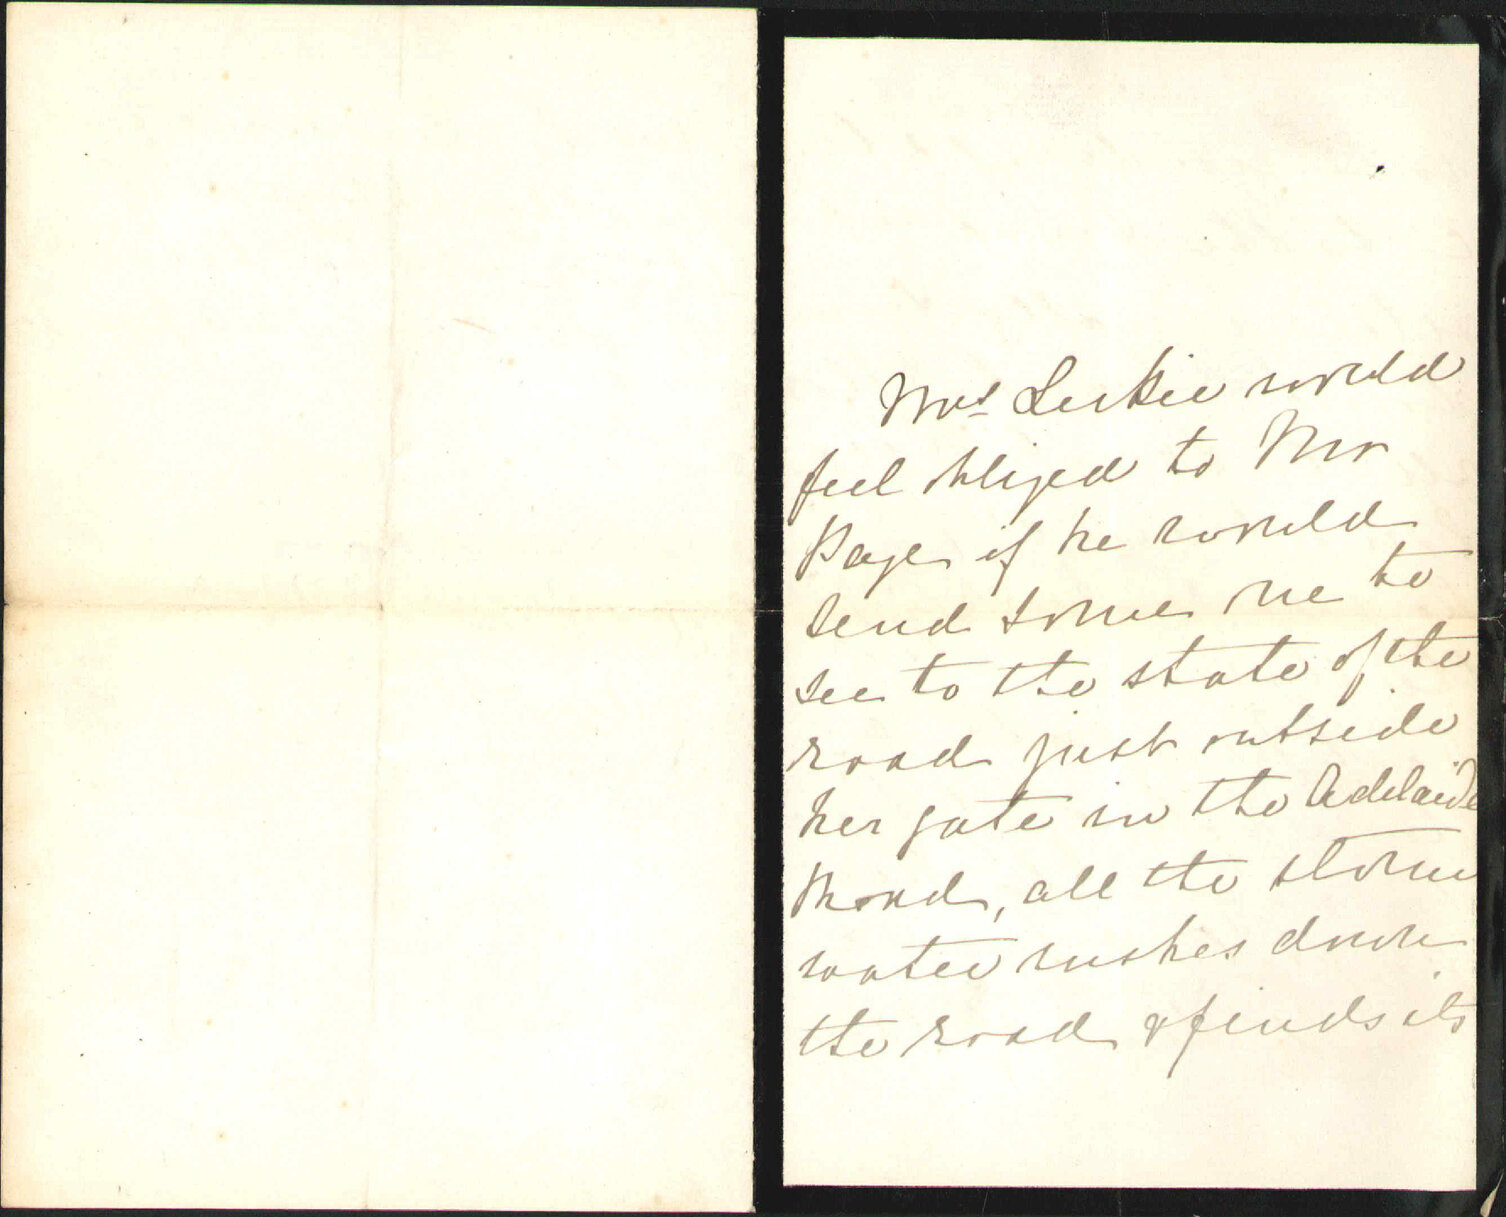 Mrs Leckie would
feel obliged to Mr
Page if he would
send some one to
see to the state of the
road just outside
her gate in the Adelaide
Road, all the storm
water rushes down
the road & finds its